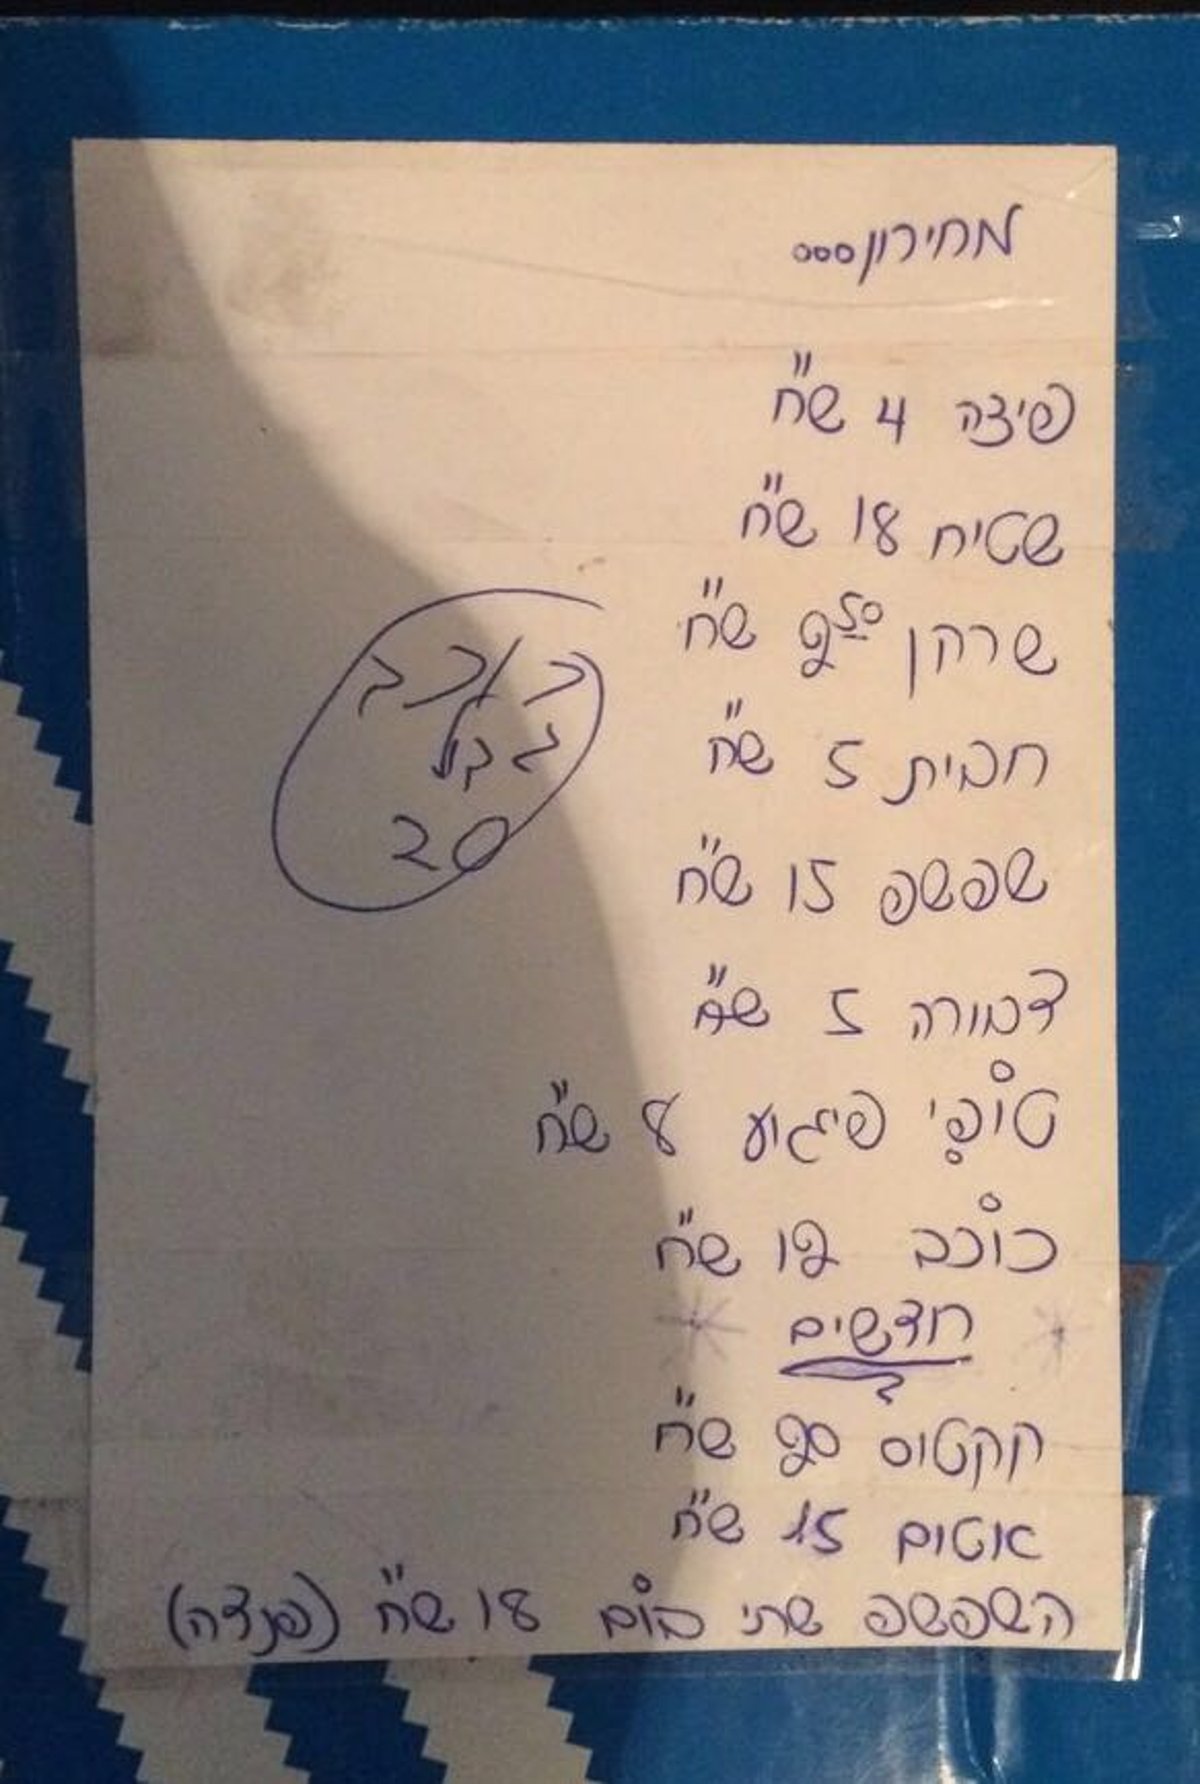 מחירון...
פיצה 4 ש"ח
שטיח 18 ש"ח
ש"ח
חבית 5 ש"ח
שפשפ 15 ש"ח
דבורה 5 ש"ח
טופי פיגוע 8 ש"ח
כוכב ש"ח
חדשים
קקטוס ש"ח
אטום 15 ש"ח
השפשפ שתי בום 18 ש"ח (פנדה)
כוכב
גדול
20